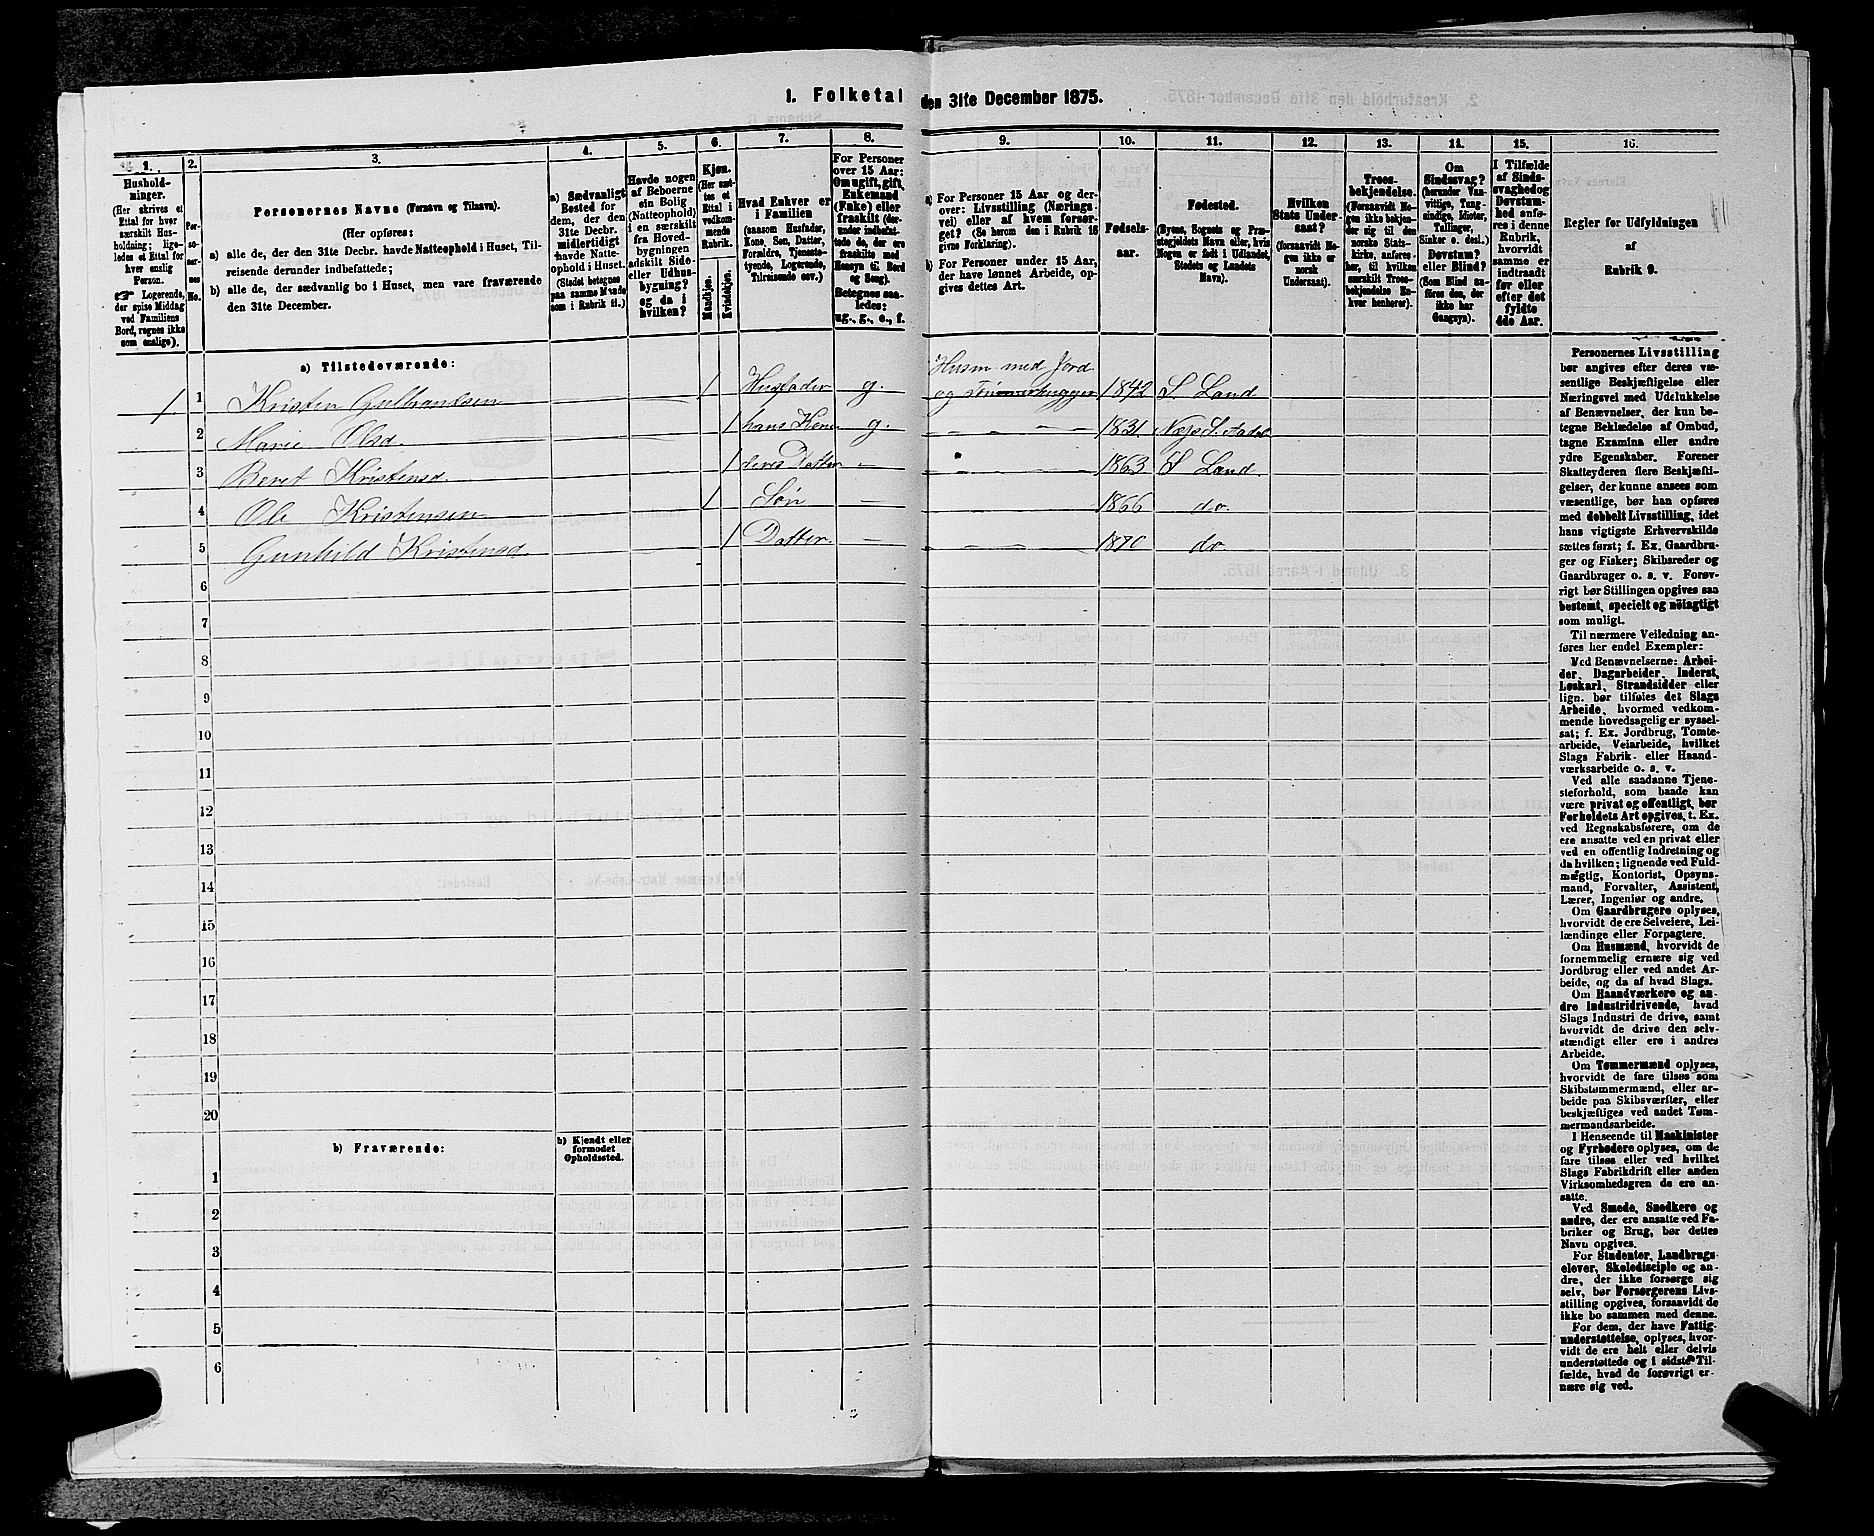 1. Folketal den 31te December 1875.
1.
2.
3.
4.
5.
6.
7.
8.
9.
10.
11.
12.
13.
14.
15.
16.
Hushold-
ninger.
(Her skrives et
Ettal for hver
særskilt Hus-
holdning; lige-
ledes et Ettal for
hver enslig
Person.
☞ Logerende,
der spise Middag
ved Familiens
Bord, regnes ikke
som enslige).
Per-
so-
ner-
nes
No.
Personernes Navne (Fornavn og Tilnavn).
(Her opføres:
a) alle de, der den 31te Decbr. havde Natteophold i Huset, Til-
reisende derunder indbefattede;
b) alle de, der sædvanlig bo i Huset, men vare fraværende
den 31te December.
a) Sædvanligt
Bosted for
dem, der den
31te Decbr.
midlertidigt
havde Natte-
ophold i Huset.
(Stedet betegnes
paa samme Maade
som i Rubrik 11.)
Havde nogen
af Beboerne
sin Bolig
(Natteophold)
i en særskilt
fra Hoved-
bygningen
adskilt Side-
eller Udhus-
bygning?
og da i
hvilken?
Kjøn.
(Her sæt-
tes et
Ettal i
vedkom-
mende
Rubrik.
Mandkjøn.
Kvindekjøn.
Hvad Enhver er
i Familien
(saasom Husfader,
Kone, Søn, Datter,
Forældre, Tjeneste-
tyende, Logerende,
Tilreisende osv.)
For Personer
over 15 Aar:
Om ugift, gift,
Enkemand
(Enke) eller
fraskilt (der-
under indbefat-
tede de, der ere
fraskilte med
Hensyn til Bord
og Seng).
Betegnes saa-
ledes:
ug., g., e., f.
a) For Personer 15 Aar og der-
over: Livsstilling (Nærings-
vei) eller af hvem forsør-
get? (Se herom den i Rubrik 16
givne Forklaring).
b) For Personer under 15 Aar,
der have lønnet Arbeide, op-
gives dettes Art.
Fødsels-
aar.
Fødested.
(Byens, Sognets og Præ-
stegjeldets Navn eller, hvis
Nogen er født i Udlandet,
Stedets og Landets
Navn).
Hvilken
Stats Under-
saat?
(forsaavidt No-
gen ikke er
norsk
Undersaat).
Troes-
bekjendelse.
(Forsaavidt No-
gen ikke bekjen-
der sig til den
norske Stats-
kirke, anføres
her, til hvilken
særskilt Troes-
bekjendelse En-
hver henhører).
Om
Sindssvag?
(herunder Van-
vittige, Tung-
sindige, Idioter,
Sinker o. desl.)
Døvstum?
eller Blind?
(Som Blind an-
føres den, der
ikke har
Gangsyn).
I Tilfælde
af Sinds-
svaghed og
Døvstum-
hed anfø-
res i denne
Rubrik,
hvorvidt
samme er
indtraadt
før eller
efter det
fyldte
4de Aar.
Regler for Udfyldningen
af
Rubrik 9.
a) Tilstedeværende:
1. 1 Kristen Gulbrandsen 1 Husfader g. Husm med Jord og Tømmerhugger 1842 S Land
2 Marie Olsd. 1 hans Kone g. 1831 Næs S. Aadal
3 Beret Kristensd. 1 deres Datter 1863 S Land
4 Ole Kristensen 1 Søn 1866 do.
5 Gunhild Kristensd. 1 Datter 1870 do
6
7
8
9
10
11
12
13
14
15
16
17
18
19
20
b) Fraværende:
b) Kjendt eller
formodet
Opholdssted.
1
2
3
4
5
6
Personernes Livsstilling
bør angives efter deres væ-
sentlige Beskjæftigelse eller
Næringsvei med Udelukkelse
af Benævnelser, der kun be-
tegne Beklædelse af Ombud,
tagne Examina eller andre
ydre Egenskaber. Forener
Skatteyderen flere Beskjæfti-
gelser, der kunne ansees som
væsentlige, bør han opføres
med dobbelt Livsstilling, idet
hans vigtigste Erhvervskilde
sættes først; f. Ex. Gaardbru-
ger og Fisker; Skibsreder og
Gaardbruger o. s. v. Forøv-
rigt bør Stillingen opgives saa
bestemt, specielt og nöiagtigt
som muligt.
Til nærmere Veiledning an-
føres her endel Exempler:
Ved Benævnelserne: Arbei-
der, Dagarbeider, Inderst,
Løskarl, Strandsidder eller
lign. bør tilføies det Slags
Arbeide, hvormed vedkom-
mende hovedsagelig er syssel-
sat; f. Ex. Jordbrug, Tomte-
arbeide, Veiarbeide, hvilket
Slags Fabrik- eller Haand-
værksarbeide o. s. v.
Ved alle saadanne Tjene-
steforhold, som baade kan
være privat og offentligt, bør
Forholdets Art opgives, t. Ex.
ved Regnskabsførere, om de
ere ansatte ved en privat eller
ved en offentlig Indretning og
da hvilken; lignende ved Fuld-
mægtig, Kontorist, Opsyns-
mand, Forvalter, Assistent,
Lærer, Ingeniør og andre.
Om Gaardbrugere oplyses,
hvorvidt de ere Selveiere, Lei-
lændinge eller Forpagtere.
Om Husmænd, hvorvidt de
fornemmelig ernære sig ved
Jordbrug eller ved andet Ar-
beide, og da af hvad Slags.
Om Haandværkere og an-
dre Industridrivende, hvad
Slags Industri de drive, samt
hvorvidt de drive den selv-
stændigt eller ere i andres
Arbeide.
Om Tømmermænd oplyses,
hvorvidt de fare tilsøs som
Skibstømmermænd, eller ar-
beide paa Skibsværfter, eller
beskjæftiges ved andet Tøm-
mermandsarbeide.
I Henseende til Maskinister
og Fyrbødere oplyses, om de
fare tilsøs eller ved hvilket
Slags Fabrikdrift eller anden
Virksomhedsgren de ere an-
satte.
Ved Smede, Snedkere og
andre, der ere ansatte ved Fa-
briker og Brug, bør dettes
Navn opgives.
For Studenter, Landbrugs-
elever, Skoledisciple og an-
dre, der ikke forsørge sig
selv, bør Forsørgerens Livs-
stilling opgives, forsaavidt de
ikke bo sammen med denne.
For dem, der have Fattig-
understøttelse, oplyses, hvor-
vidt de ere helt eller delvis
understøttede og i sidste Til-
fælde, hvad de forøvrigt er-
nære sig ved.